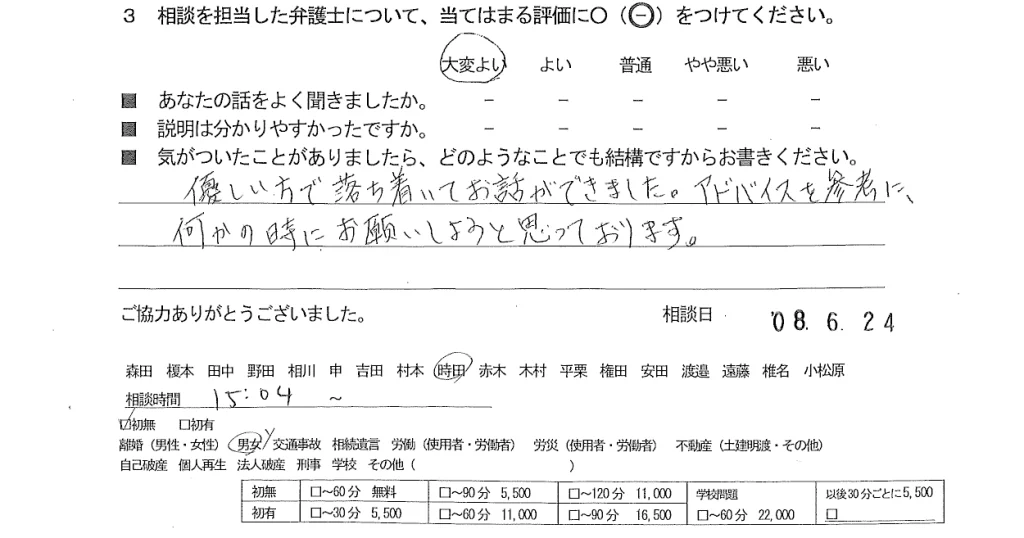 3 相談を担当した弁護士について、当てはまる評価に〇(㊀)をつけてください。
大変よい よい 普通 やや悪い 悪い
■ あなたの話をよく聞きましたか。 − − − − −
■ 説明は分かりやすかったですか。 − − − − −
■ 気がついたことがありましたら、どのようなことでも結構ですからお書きください。
優しい方で落ち着いてお話ができました。アドバイスを参考に、
何かの時にお願いしようと思っております。
ご協力ありがとうございました。 相談日 '08.6.24
森田 榎本 田中 野田 相川 申 吉田 村本 時田 赤木 木村 平栗 権田 安田 渡邉 遠藤 椎名 小松原
相談時間 15:04 ~
☑初無 □初有
離婚(男性・女性) 男女 交通事故 相続遺言 労働(使用者・労働者) 労災(使用者・労働者) 不動産(土建明渡・その他)
自己破産 個人再生 法人破産 刑事 学校 その他( )
初無 □~60分 無料 □~90分 5,500 □~120分 11,000 学校問題 以後30分ごとに5,500
初有 □~30分 5,500 □~60分 11,000 □~90分 16,500 □~60分 22,000 □